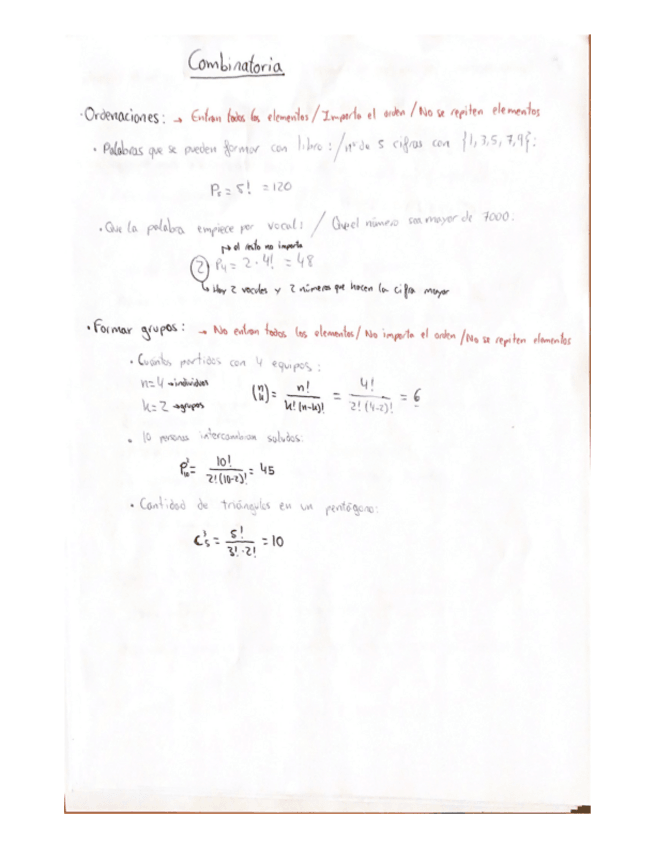 Combinatoria
· Ordenaciones: → Entran todos los elementos / Importa el orden / No se repiten elementos
· Palabras que se pueden formar con libro: / nº de 5 cifras con {1,3,5,7,9}:
P₅ = 5! = 120
· Que la palabra empiece por vocal: / Que el número sea mayor de 7000:
→ el resto no importa
2 P₄ = 2·4! = 48
↳ Hay 2 vocales y 2 números que hacen la cifra mayor
· Formar grupos: → No entran todos los elementos / No importa el orden / No se repiten elementos
· Cuántos partidos con 4 equipos:
n=4 → individuos
k=2 → grupos
(n k) = n! / k!(n-k)! = 4! / 2!(4-2)! = 6
· 10 personas intercambian saludos:
P²₁₀ = 10! / 2!(10-2)! = 45
· Cantidad de triángulos en un pentágono:
C³₅ = 5! / 3!·2! = 10